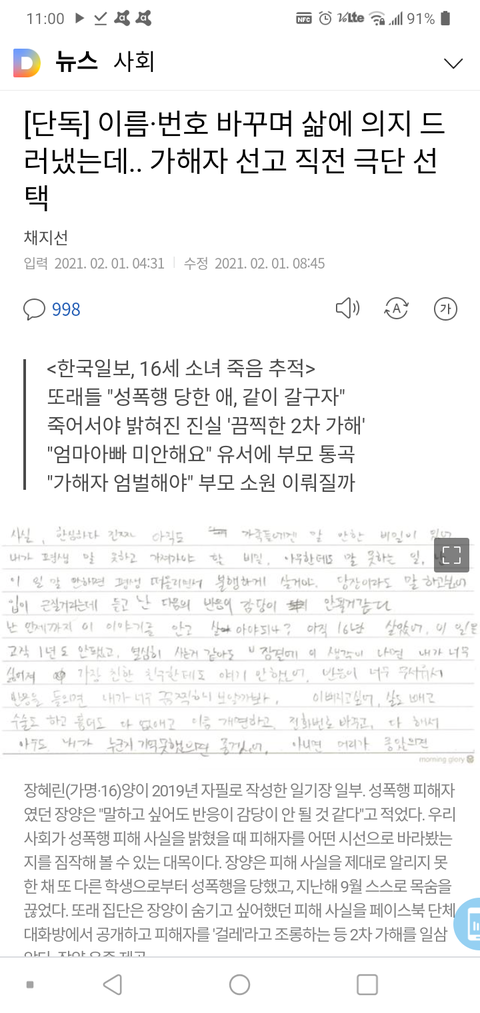 11:00
NFC VoLte 91%
뉴스 사회
[단독] 이름·번호 바꾸며 삶에 의지 드
러냈는데.. 가해자 선고 직전 극단 선
택
채지선
입력 2021. 02. 01. 04:31 수정 2021. 02. 01. 08:45
998 A 가
<한국일보, 16세 소녀 죽음 추적>
또래들 "성폭행 당한 애, 같이 갈구자"
죽어서야 밝혀진 진실 '끔찍한 2차 가해'
"엄마아빠 미안해요" 유서에 부모 통곡
"가해자 엄벌해야" 부모 소원 이뤄질까
사실, 한심하다 진짜 아직도 가족들에겐 말 안한 비밀이
내가 평생 말 못하고 가져가야 할 비밀. 아무한테도 말 못하는 일,
이 일 말 안하면 평생 불행하게 살거야. 당장이라도 말 하고싶어
입이 근질거리는데 듣고 난 다음의 반응이 감당이 안될거같다
난 언제까지 이 이야기를 안고 살아야되나? 아직 16년 살았어. 이 일은
고작 1년도 안됐고. 열심히 사는거 같아도 이 생각이 나면 내가 너무
싫어져 가장 친한 친구한테도 얘기 안했어, 반응이 너무 무서워서
내가 너무 끔찍하니 보일까봐, 살도 빼고
수술도 하고 흉터도 다 없애고 이름 개명하고, 전화번호 바꾸고, 다 해서
아무도 내가 누군지 기억못했으면 좋겠어, 아니면 머리가 좋았으면
morning glory
장혜린(가명·16)양이 2019년 자필로 작성한 일기장 일부. 성폭행 피해자
였던 장양은 "말하고 싶어도 반응이 감당이 안 될 것 같다"고 적었다. 우리
사회가 성폭행 피해 사실을 밝혔을 때 피해자를 어떤 시선으로 바라봤는
지를 짐작해 볼 수 있는 대목이다. 장양은 피해 사실을 제대로 알리지 못
한 채 또 다른 학생으로부터 성폭행을 당했고, 지난해 9월 스스로 목숨을
끊었다. 또래 집단은 장양이 숨기고 싶어했던 피해 사실을 페이스북 단체
대화방에서 공개하고 피해자를 '걸레'라고 조롱하는 등 2차 가해를 일삼
았다. 장양 유족 제공